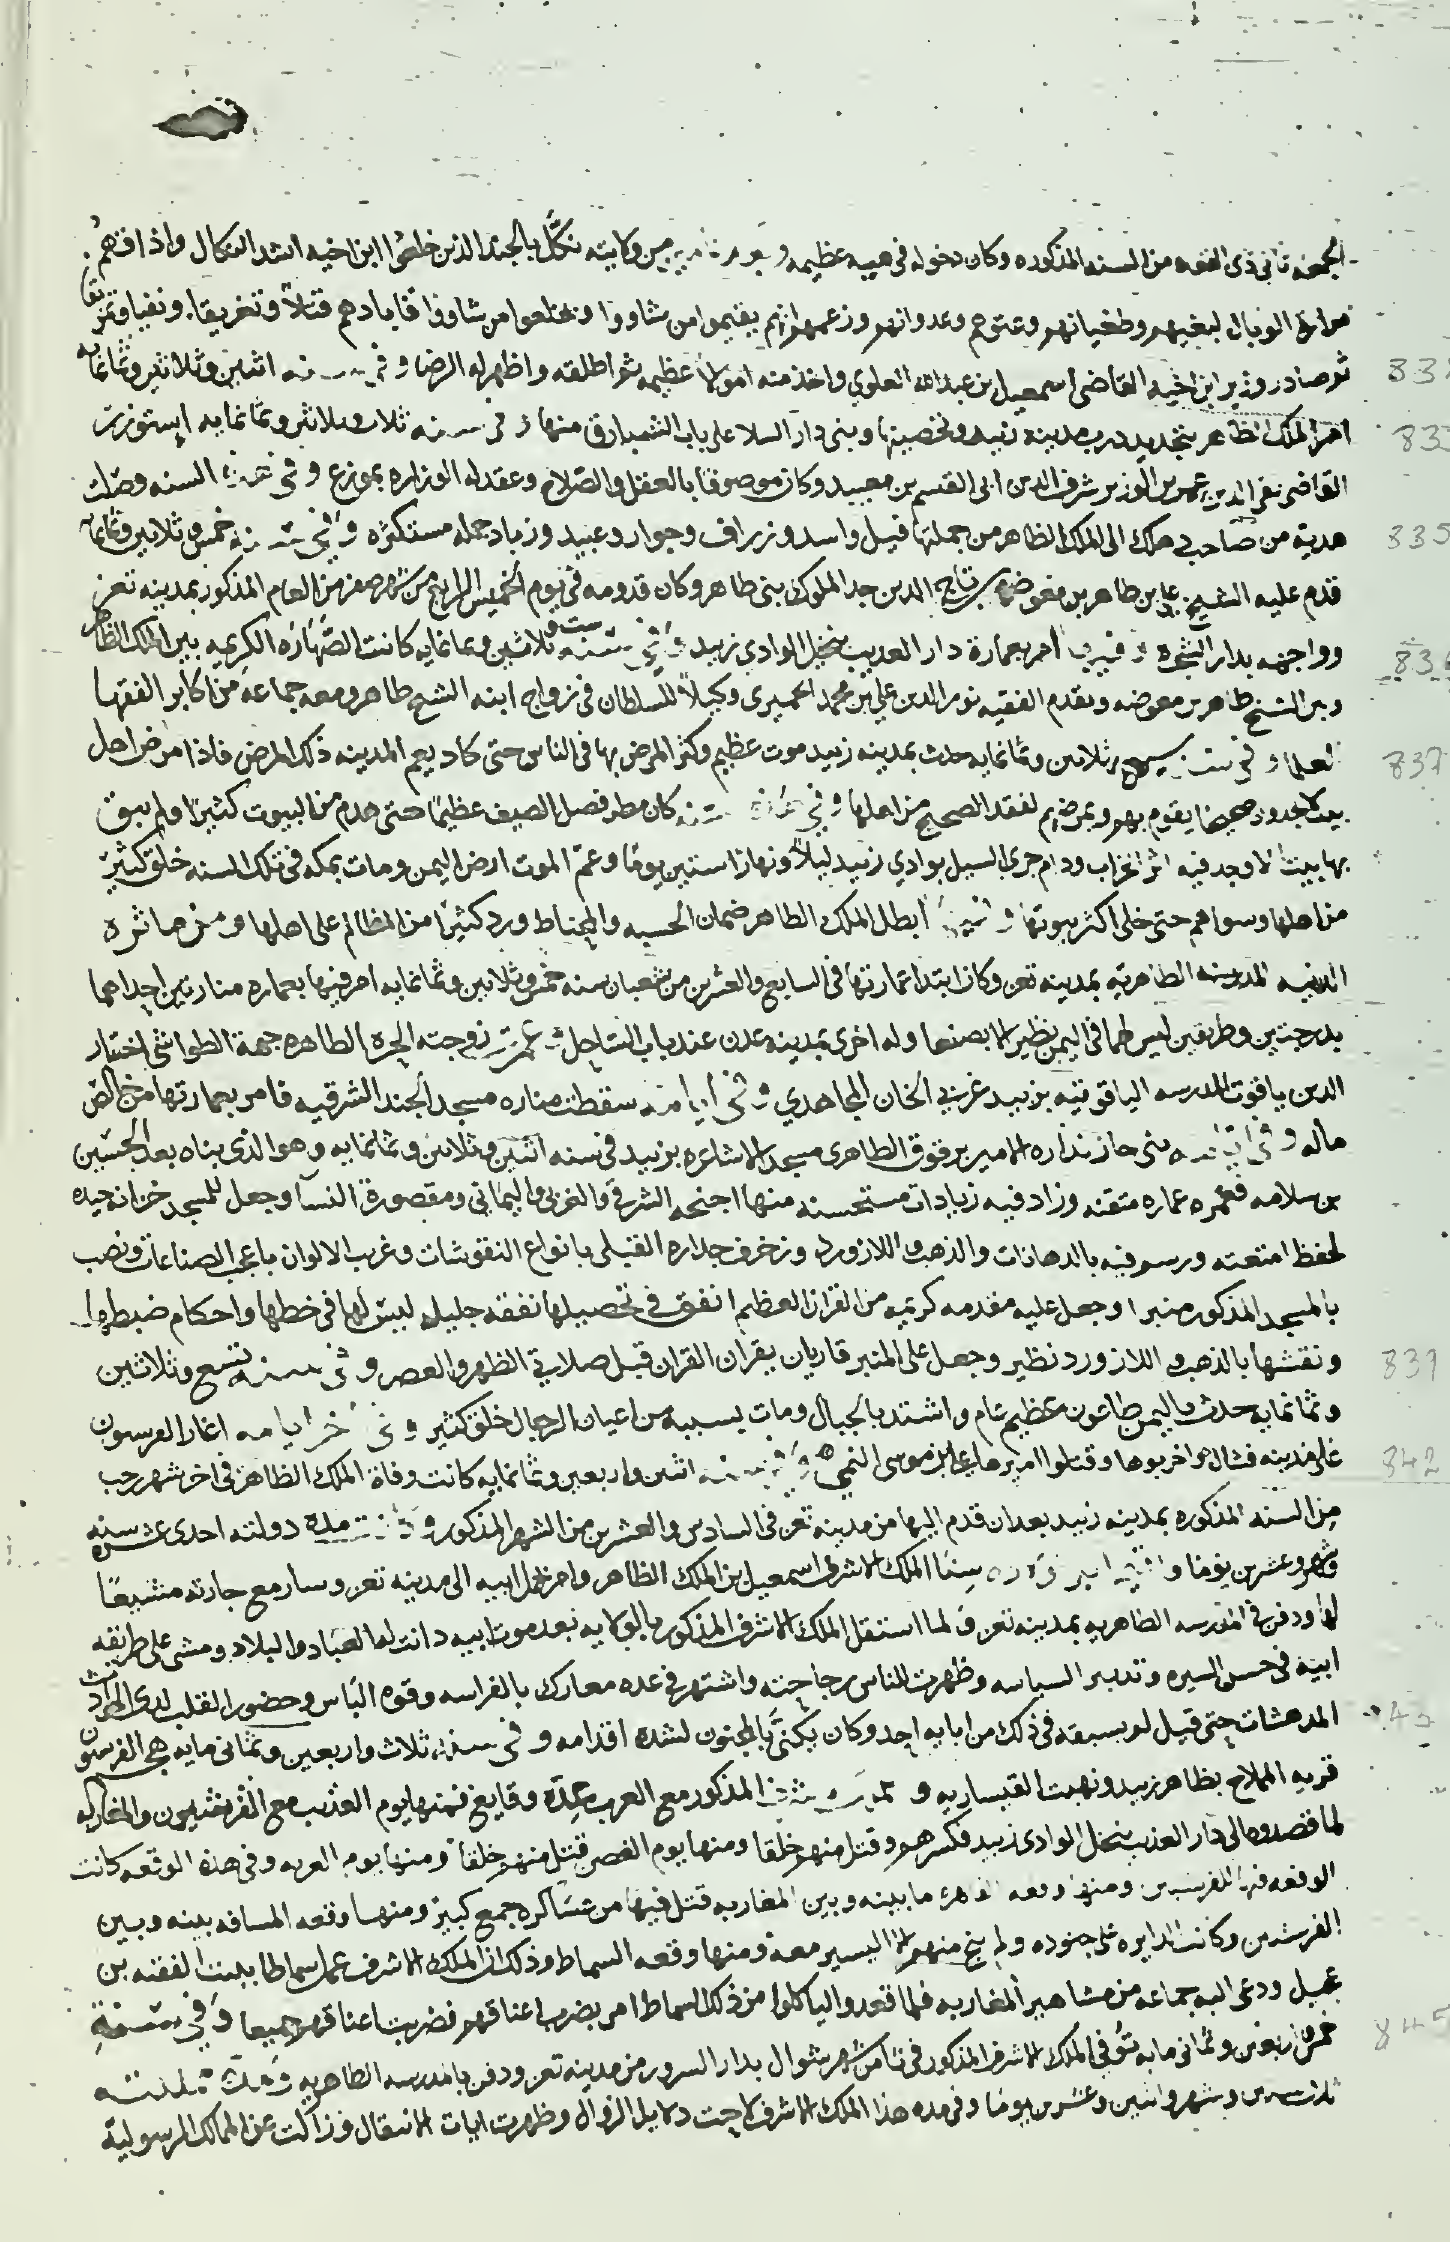 الجمعه ثاني ذي القعده من السنه المذكوره وكان دخوله في هيبه عظيمه و من ولايته نكل بالجند الذين خلعوا ابن اخيه اشد النكال واذاقهم
الوبال لبغيهم وطغيانهم وعتوهم وعدوانهم وزعمهم انهم يقيموا من شاووا ويخلعوا من شاووا فابادهم قتلاً وتغريقا ونفيا وتمزيقا
ثم صادر وزير ابن اخيه القاضي اسمعيل بن عبدالله العلوي واخذ منه اموالا عظيمه ثم اطلقه واظهر له الرضا وفي سنه اثنين وثلاثين وثمانمايه 832
امر الملك الظاهر بتجديد درب مدينه زبيد وتحصينها وبنى دار السلا على باب الشبارق منها وفي سنه ثلاث وثلاثين وثمانمايه استوزر 833
القاضي الوزير شرف الدين ابي القسم بن معيبد وكان موصوفا بالعقل والصلاح وعقد له الوزاره بموزع وفي السنه وصلت
هدية من صاحب الى الملك الظاهر من جملتها فيل واسد وزراف وجوار وعبيد وزباد جمله مستكثره وفي سنه خمس وثلاثين وثمانمايه 835
قدم عليه الشيخ علي بن طاهر بن معوضه بن تاج الدين جد الملوك بني طاهر وكان قدومه في يوم الخميس الرابع من شهر صفر من العام المذكور بمدينه تعز
وواجهه بدار الشجره وفيها امر بعمارة دار العذيب بنخل الوادي زبيد وفي سنه ست وثلاثين وثمانمايه كانت الصهاره الكريمه بين الملك الظاهر 836
وبين الشيخ طاهر بن معوضه وتقدم الفقيه نور الدين علي بن محمد الحميري وكيلاً للسلطان في زواج ابنه الشيخ طاهر ومعه جماعة من اكابر الفقها
العلما وفي سنه سبع وثلاثين وثمانمايه حدث بمدينه زبيد موت عظيم وكثر المرض بها في الناس حتى كاد يعم المدينه ذلك المرض فاذا مرض اهل 837
بيت لا يجدون صحيحا يقوم بهم ويمرضهم لفقد الصحيح من اهلها وفي سنه كان مطر فصل الصيف عظيما حتى هدم من البيوت كثيرا ولم يبق
بها بيت الا وجد فيه اثر الخراب ودام جري السيل بوادي زبيد ليلاً ونهارا ستين يوما وعم الموت ارض اليمن ومات بمكه في تلك السنه خلق كثير
من اهلها وسواهم حتى خلى اكثر بيوتها وفيها ابطل الملك الظاهر ضمان الحسبه والمخباط ورد كثيرا من المظالم على اهلها ومن ماثره
المدرسه الظاهريه بمدينه تعز وكان ابتدا عمارتها في السابع والعشرين من شعبان سنه خمس وثلاثين وثمانمايه امر فيها بعماره منارتين احداهما
بدرجتين وطريقين ليس لهما في اليمن نظير الا بصنعا وله اخرى بمدينه عدن عند باب الساحل وعمرت زوجته الحرة الطاهره جهة الطواشي اختيار
الدين ياقوت المدرسه الياقوتيه بزبيد غربي الخان المجاهدي وفي ايامه سقطت مناره مسجد الجند الشرقيه فامر بعمارتها من خالص
ماله وفي بنى خازنداره الامير برقوق الظاهري مسجد الاشاعره بزبيد في سنه اثنين وثلاثين وثمانمايه وهو الذي بناه بعد الحسين
بن سلامه فعمره عماره متقنه وزاد فيه زيادات مستحسنه منها اجنحه الشرقي والغربي واليماني ومقصورة النسا وجعل للمسجد خزانه جيده
لحفظ امتعته ورسم فيه بالدهانات والذهب واللازورد وزخرف جداره القبلي بانواع النقوشات وغريب الالوان باعجب الصناعات ونصب
بالمسجد المذكور منبرا وجعل عليه مقدمه كريمه من القران العظيم انفق في تحصيلها نفقه جليله ليس لها في خطها واحكام ضبطها
ونقشها بالذهب واللازورد نظير وجعل على المنبر قاريان يقران القران قبل صلاتي الظهر والعصر وفي سنه تسع وثلاثين 839
وثمانمايه حدث باليمن طاعون عظيم عام واشتد بالجبال ومات بسببه من اعيان الرجال خلق كثير وفي اخر ايامه اغار القرشيون
على مدينه فشال واخربوها وقتلوا اميرها علي بن موسى وفي سنه اثنين واربعين وثمانمايه كانت وفاة الملك الظاهر في اخر شهر رجب 842
من السنه المذكوره بمدينه زبيد بعد ان قدم اليها من مدينه تعز في السادس والعشرين من الشهر المذكور وكانت مدة دولته احدى عشره سنه
وعشرين يوما و الملك الاشرف اسمعيل بن الملك الظاهر وامر بحمل ابيه الى مدينه تعز وسار مع جنازته مشيعا
لها ودفن في المدرسه الظاهريه بمدينه تعز ولما استقل الملك الاشرف المذكور بالولايه بعد موت ابيه دانت له العباد والبلاد ومشى على طريقه
ابيه في حسن السيره وتدبير السياسه وظهرت للناس رجاحته واشتهر في عده معارك بالفراسه وقوه الباس وحضور القلب لدى الحوادث
المدهشات حتى قيل لم يسبقه في ذلك من ابايه احد وكان يكنى بالمجنون لشده اقدامه وفي سنه ثلاث واربعين وثماني مايه هجم القرشيون
قريه المملاح بظاهر زبيد ونهبت القيساريه و المذكور مع العرب عدة وقايع فمنها يوم العذيب مع القرشيون والمغاربه
لما قصدوه الى دار العذيب بنخل الوادي زبيد فكسرهم وقتل منهم خلقا ومنها يوم القصر قتل منهم خلقا ومنها يوم العربه وفي هذه الوقعه كانت
الوقعه ومنها وقعه ما بينه وبين المغاربه قتل فيها من عساكره جمع كبير ومنها وقعه المسافه بينه وبين
القرشيين وكانت الدايره على جنوده ولم ينج منهم الا اليسير معه ومنها وقعه السماط وذلك ان الملك الاشرف عمل سماطا ببيت الفقيه بن
عجيل ودعى اليه جماعه من مشاهير المغاربه فلما قعدوا لياكلوا من ذلك السماط امر بضرب اعناقهم فضربت اعناقهم جميعا وفي سنة
خمس واربعين وثماني مايه توفي الملك الاشرف المذكور في ثامن شهر شوال بدار السرور من مدينه تعز ودفن بالمدرسه الظاهريه 845
ثلاث سنين وشهر واثنين وعشرين يوما وفي مده هذا الملك الاشرف لاحت دلايل الزوال وظهرت ايات الانتقال وزالت عن الممالك الرسولية